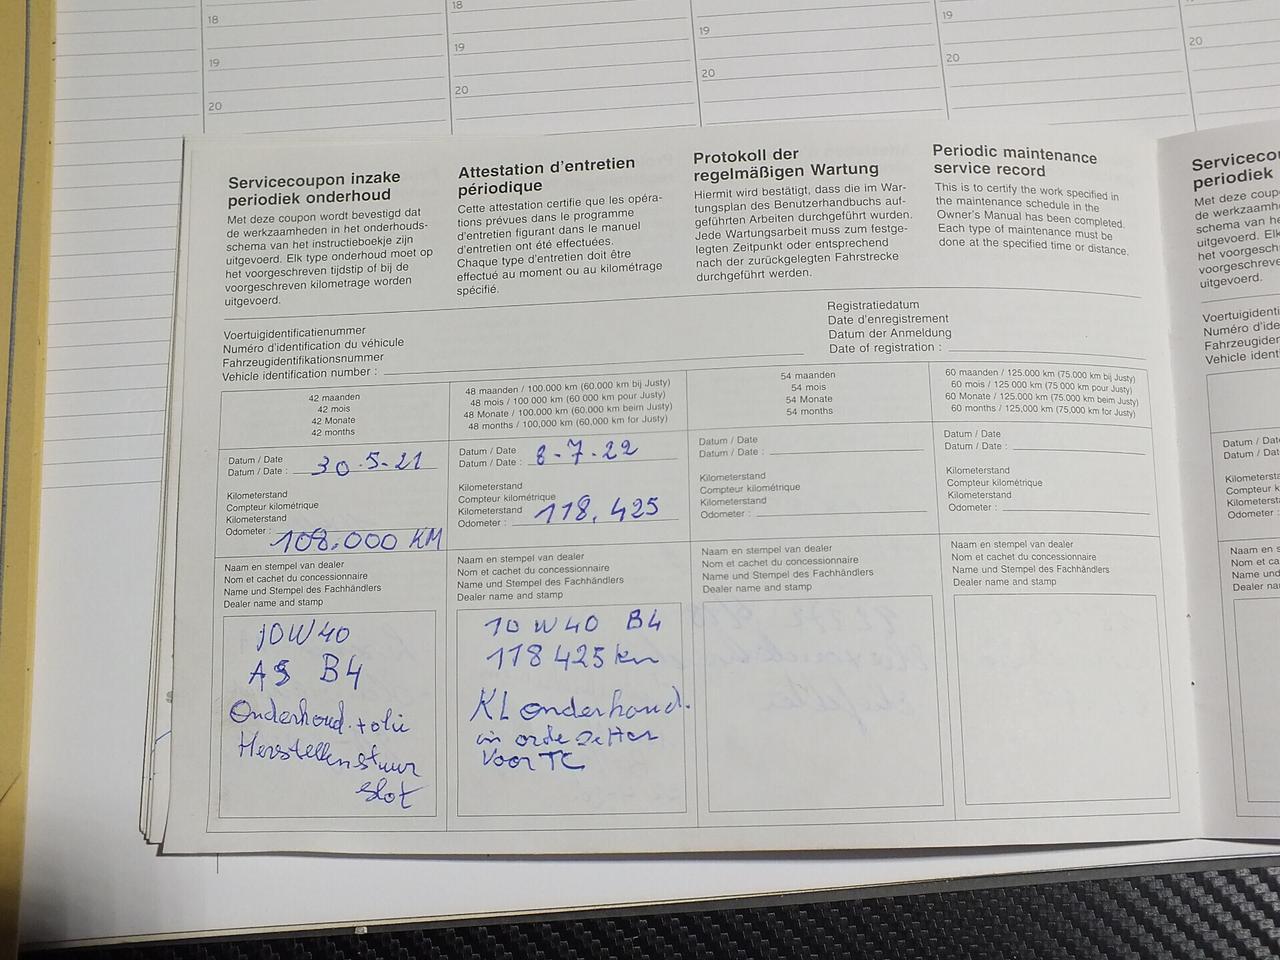 18
19
20
18
19
20
19
20
19
20
20
Servicecoupon inzake
periodiek onderhoud
Met deze coupon wordt bevestigd dat
de werkzaamheden in het onderhouds-
schema van het instructieboekje zijn
uitgevoerd. Elk type onderhoud moet op
het voorgeschreven tijdstip of bij de
voorgeschreven kilometrage worden
uitgevoerd.
Attestation d'entretien
périodique
Cette attestation certifie que les opéra-
tions prévues dans le programme
d'entretien figurant dans le manuel
d'entretien ont été effectuées.
Chaque type d'entretien doit être
effectué au moment ou au kilométrage
spécifié.
Protokoll der
regelmäßigen Wartung
Hiermit wird bestätigt, dass die im War-
tungsplan des Benutzerhandbuchs auf-
geführten Arbeiten durchgeführt wurden.
Jede Wartungsarbeit muss zum festge-
legten Zeitpunkt oder entsprechend
nach der zurückgelegten Fahrstrecke
durchgeführt werden.
Periodic maintenance
service record
This is to certify the work specified in
the maintenance schedule in the
Owner's Manual has been completed.
Each type of maintenance must be
done at the specified time or distance.
Voertuigidentificatienummer
Numéro d'identification du véhicule
Fahrzeugidentifikationsnummer
Vehicle identification number :
Registratiedatum
Date d'enregistrement
Datum der Anmeldung
Date of registration :
42 maanden
42 mois
42 Monate
42 months
48 maanden / 100.000 km (60.000 km bij Justy)
48 mois / 100 000 km (60 000 km pour Justy)
48 Monate / 100.000 km (60.000 km beim Justy)
48 months / 100,000 km (60,000 km for Justy)
54 maanden
54 mois
54 Monate
54 months
60 maanden / 125.000 km (75.000 km bij Justy)
60 mois / 125 000 km (75 000 km pour Justy)
60 Monate / 125.000 km (75.000 km beim Justy)
60 months / 125,000 km (75,000 km for Justy)
Datum / Date
Datum / Date : 30.5-21
Kilometerstand
Compteur kilométrique
Kilometerstand
Odometer : 108.000 KM
Datum / Date
Datum / Date : 8-7-22
Kilometerstand
Compteur kilométrique
Kilometerstand 118.425
Odometer :
Datum / Date
Datum / Date :
Kilometerstand
Compteur kilométrique
Kilometerstand
Odometer :
Datum / Date
Datum / Date :
Kilometerstand
Compteur kilométrique
Kilometerstand
Odometer :
Naam en stempel van dealer
Nom et cachet du concessionnaire
Name und Stempel des Fachhändlers
Dealer name and stamp
10W40
B4
Onderhoud + olie
Herstellen stuur
slot
Naam en stempel van dealer
Nom et cachet du concessionnaire
Name und Stempel des Fachhändlers
Dealer name and stamp
10 W40 B4
118 425 km
KL onderhoud.
in orde zetten
voor TC
Naam en stempel van dealer
Nom et cachet du concessionnaire
Name und Stempel des Fachhändlers
Dealer name and stamp
Naam en stempel van dealer
Nom et cachet du concessionnaire
Name und Stempel des Fachhändlers
Dealer name and stamp
Serviceco
periodiek
Met deze coup
de werkzaamhe
schema van he
uitgevoerd. Elk
het voorgesch
voorgeschreve
uitgevoerd.
Voertuigidenti
Numéro d'iden
Fahrzeugiden
Vehicle identif
Datum / Date
Datum / Date
Kilometerstan
Compteur k
Kilometersta
Odometer :
Naam en s
Nom et cach
Name und S
Dealer nam